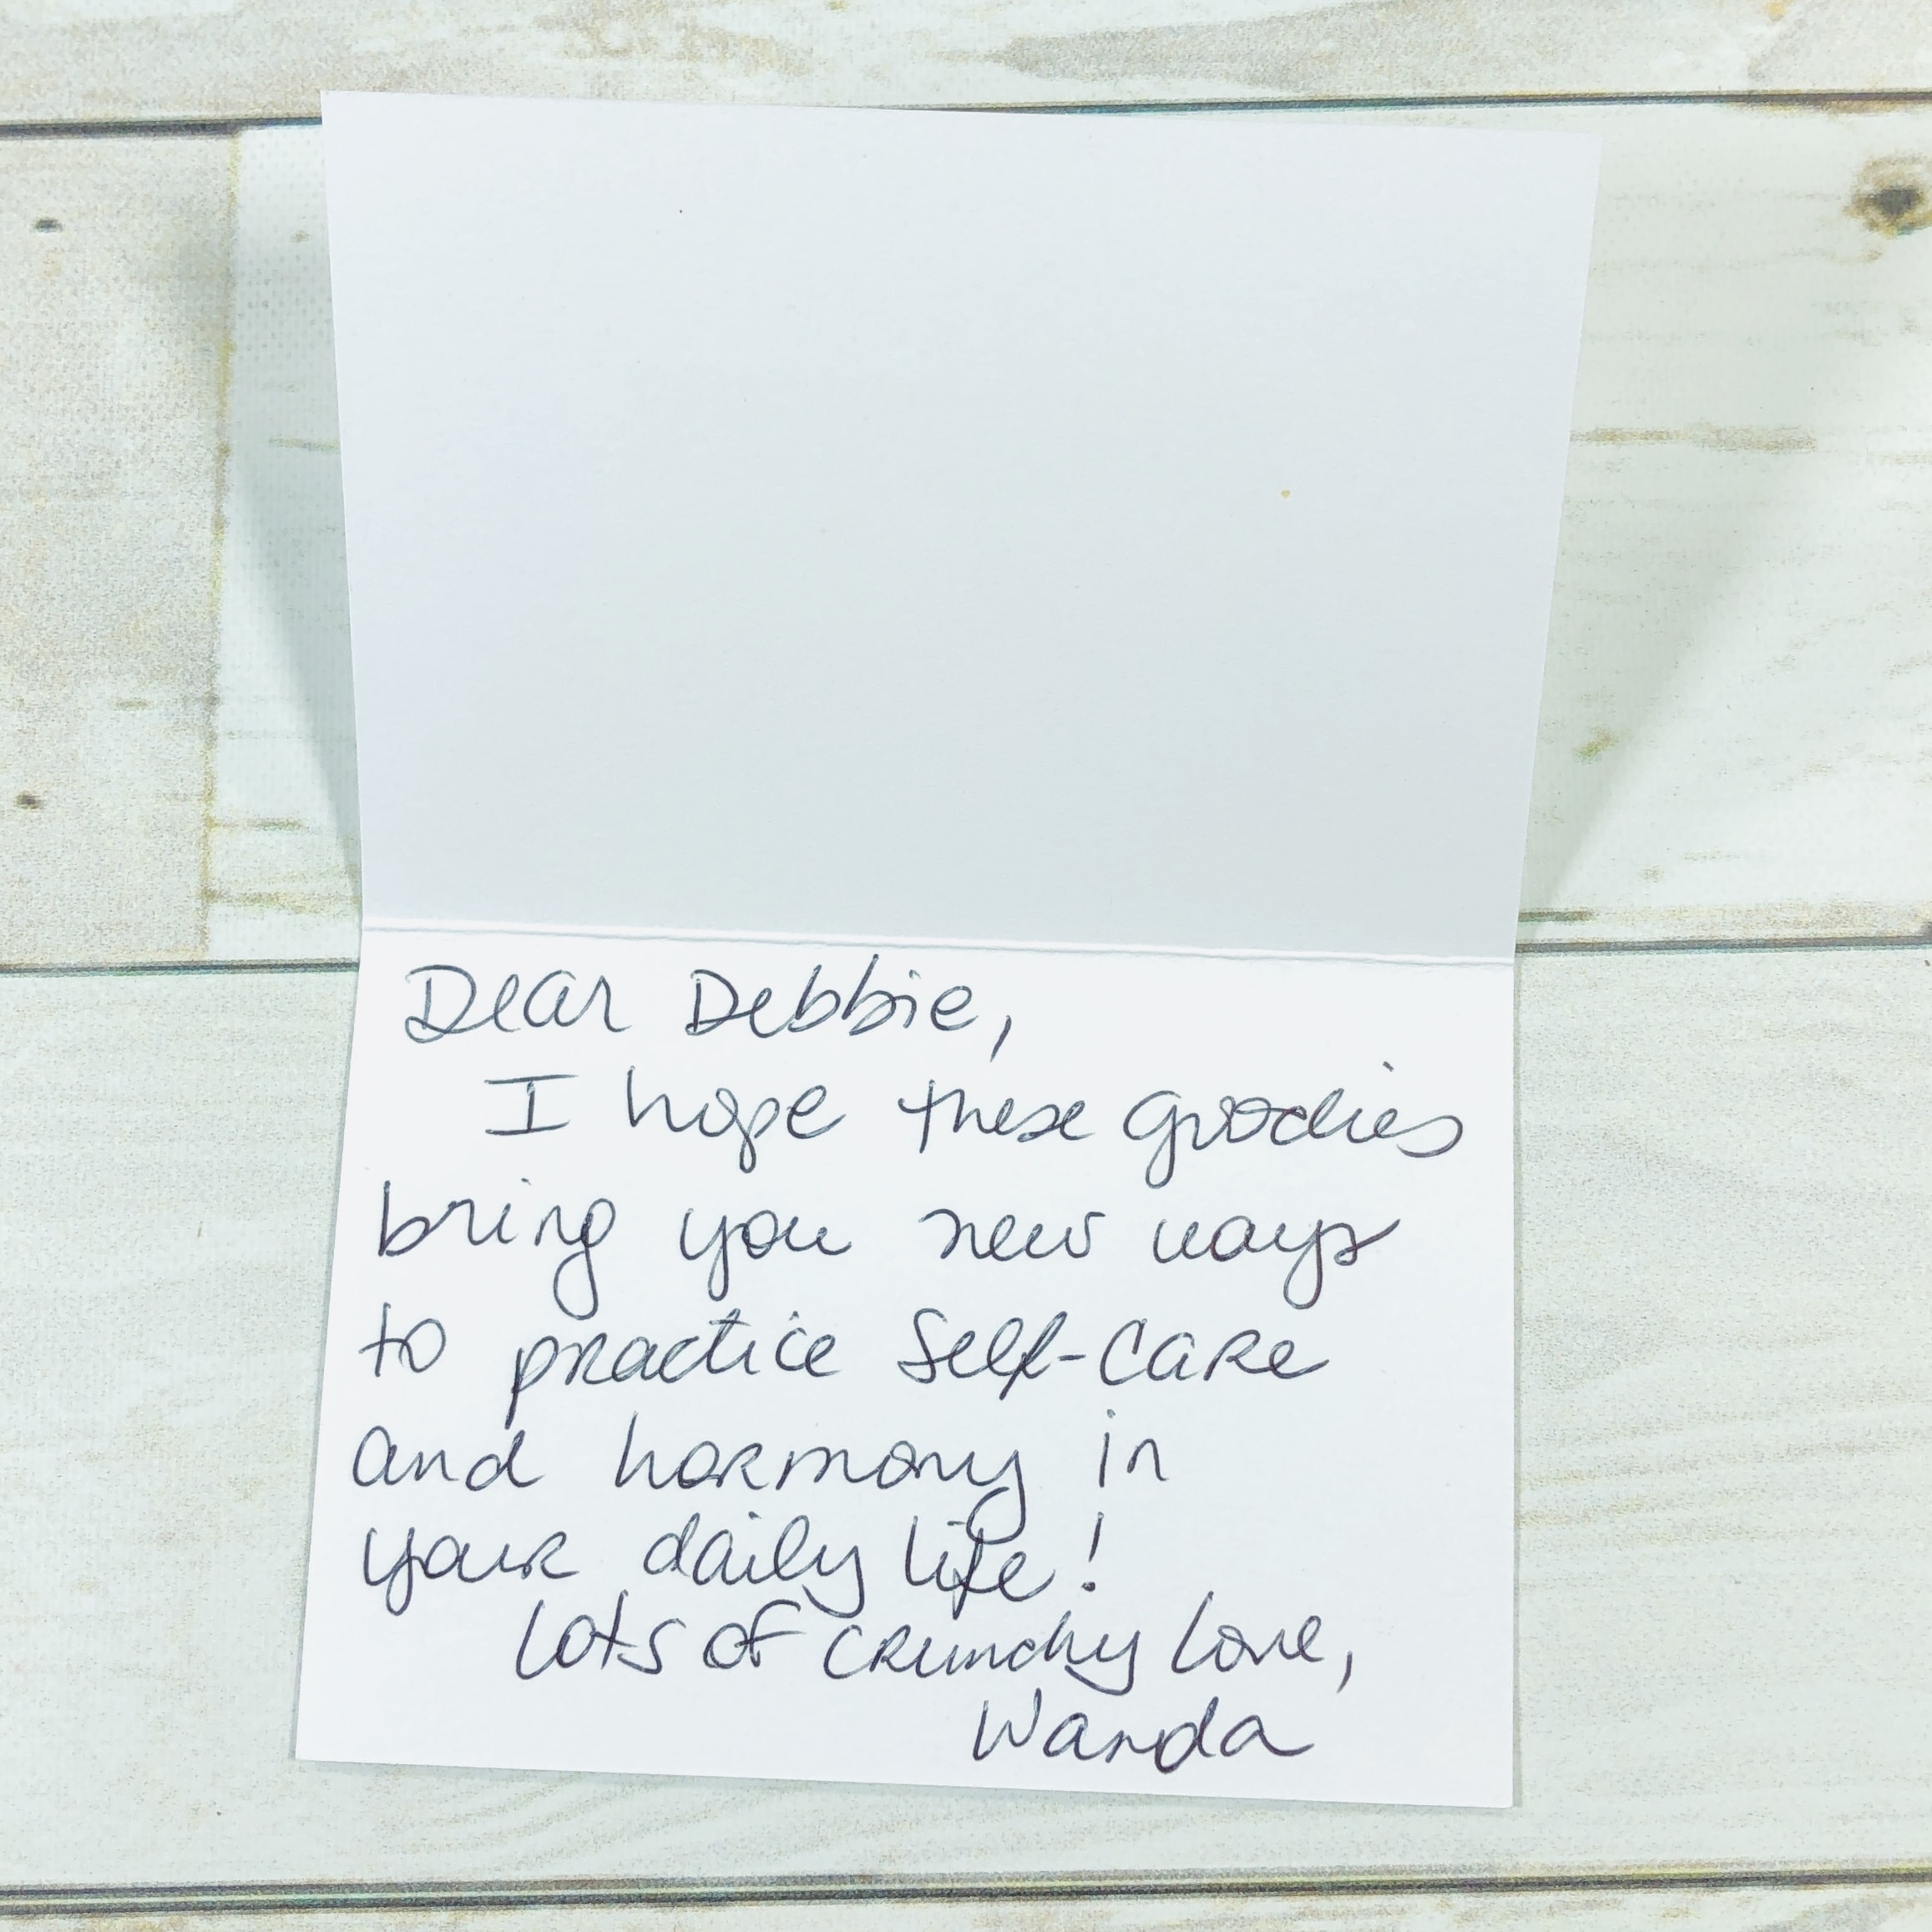 Dear Debbie,
I hope these goodies
bring you new ways
to practice Self-care
and harmony in
your daily life!
Lots of crunchy love,
Wanda